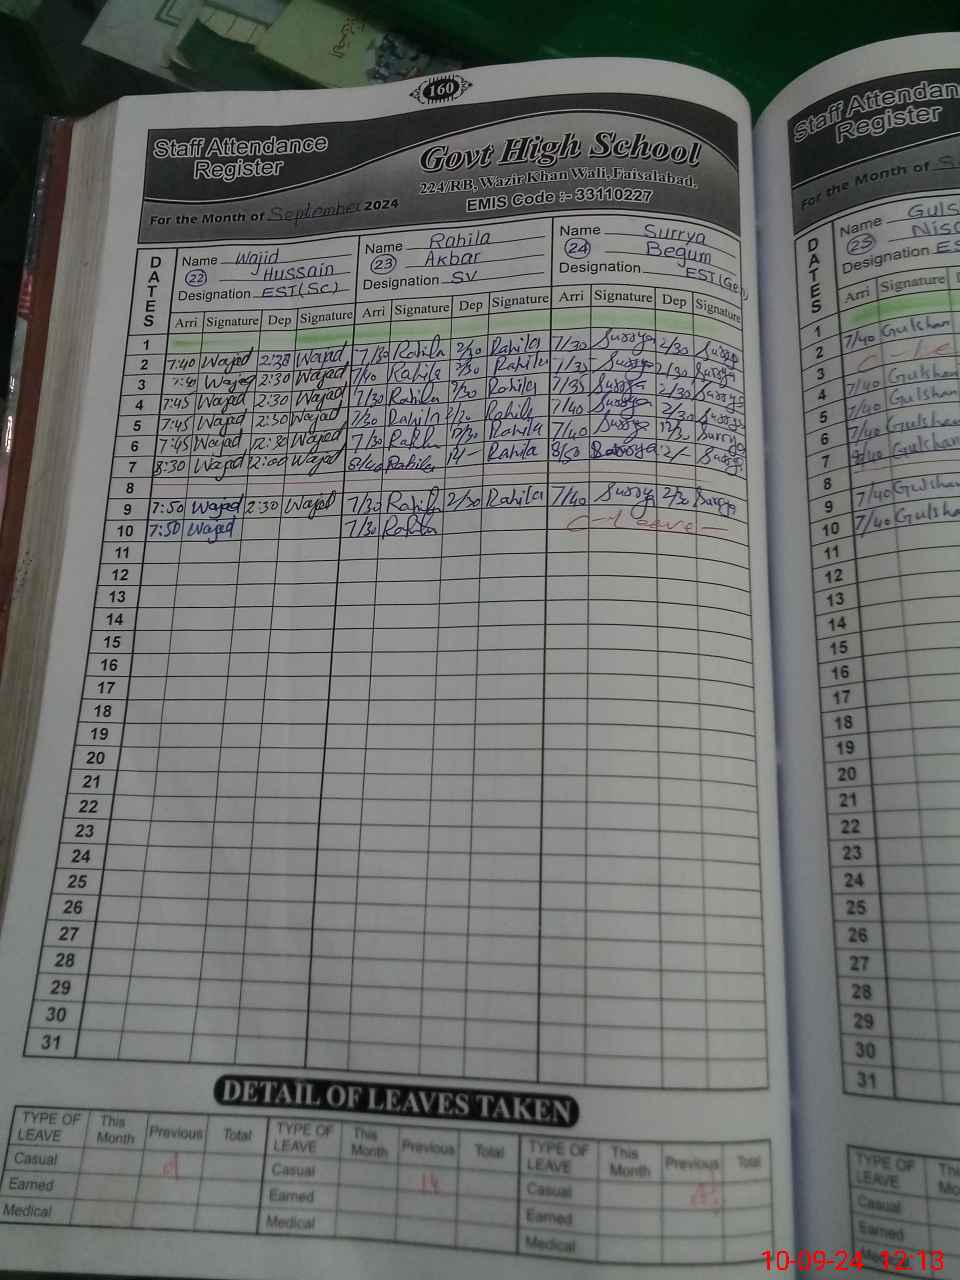 160
Staff Attendance
Register
Govt High School
224/RB, Wazir Khan Wali, Faisalabad.
EMIS Code :- 33110227
For the Month of September 2024
DATES
Name Wajid
(22) Hussain
Designation EST(Sc)
Name Rahila
(23) Akbar
Designation SV
Name Surrya
(24) Begum
Designation EST(Gen)
Arri Signature Dep Signature Arri Signature Dep Signature Arri Signature Dep Signature
1
2 7:40 Wajad 2:30 Wajad 7/30 Rahila 2/30 Rahila 7/30 Surrya 2/30 Surrya
3 Wajad 2:30 Wajad 7/40 Rahila 2/30 Rahila 7/35 Surrya 2/30 Surrya
4 7:45 Wajad 2:30 Wajad 7/30 Rahila 2/30 Rahila 7/35 Surrya 2/30 Surrya
5 7:45 Wajad 2:30 Wajad 7/30 Rahila Rahila 7/40 Surrya 2/30 Surrya
6 7:45 Wajad 12:30 Wajad 7/30 Rahila 12/30 Rahila 7/40 Surrya 12/30 Surrya
7 8:30 Wajad 2:00 Wajad 8/40 Rahila Rahila 8/50 Surrya 2/- Surrya
8
9 7:50 Wajad 2:30 Wajad 7/30 Rahila 2/30 Rahila 7/40 Surrya 2/30 Surrya
10 7:50 Wajad 7/30 Rahila C-Leave-
11
12
13
14
15
16
17
18
19
20
21
22
23
24
25
26
27
28
29
30
31
DETAIL OF LEAVES TAKEN
TYPE OF LEAVE This Month Previous Total TYPE OF LEAVE This Month Previous Total TYPE OF LEAVE This Month Previous Total
Casual Casual 14 Casual
Earned Earned Earned
Medical Medical Medical
Staff Attendan
Register
For the Month of Se
DATES
Name Guls
(25) Niso
Designation ES
Arri Signature
1 7/40 Gulshan
2 C-Le
3 7/40 Gulshan
4 7/40 Gulshan
5 7/40 Gulshan
6 7/40 Gulshan
7
8
9 7/40 Gulshan
10 7/40 Gulshan
11
12
13
14
15
16
17
18
19
20
21
22
23
24
25
26
27
28
29
30
31
TYPE OF LEAVE Th Mo
Casual
Earned
Medical
10-09-24 12:13